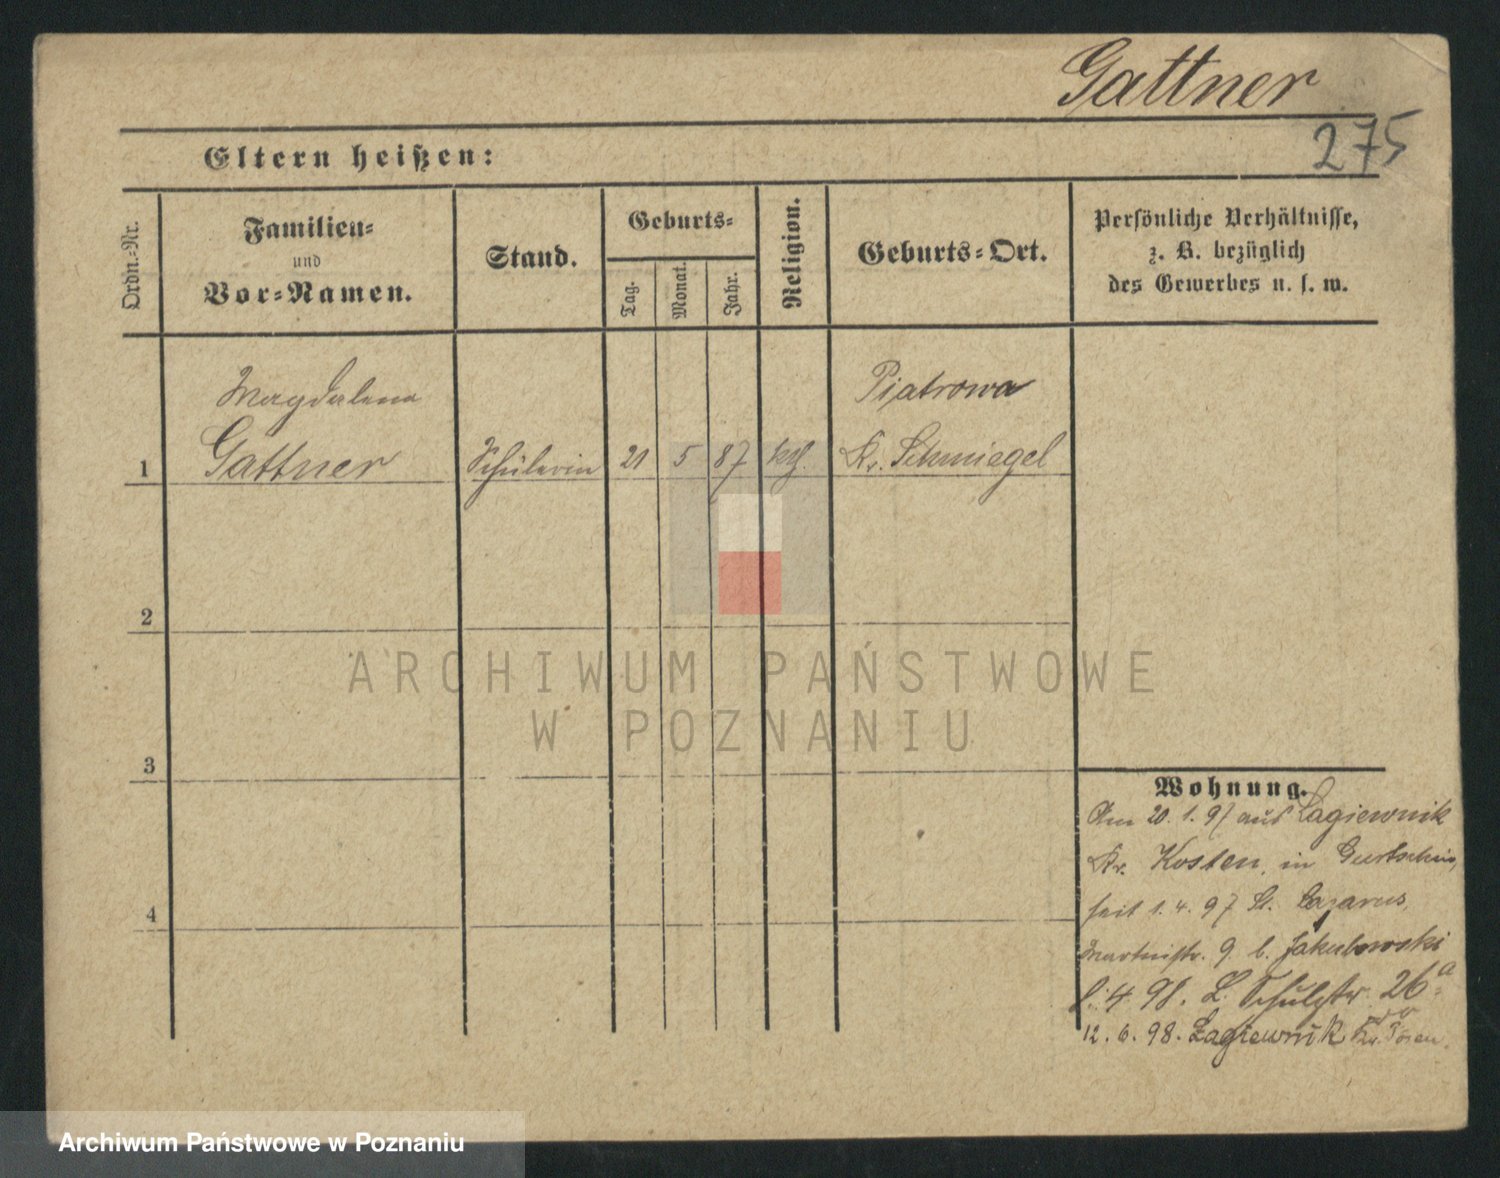 Gattner
275
Eltern heißen:
Ordn.-Nr.
Familien-
und
Vor-Namen.
Stand.
Geburts-
Tag.
Monat.
Jahr.
Religion.
Geburts-Ort.
Persönliche Verhältnisse,
z. B. bezüglich
des Gewerbes u. s. w.
Magdalena
Gattner
Piatrowa
1
Schülerin
21
5
87
kth.
Kr. Schmiegel
2
3
4
Wohnung.
Am 20. 1. 97 aus Lagiewnik
Kr. Kosten, in Gurtschin,
seit 1. 4. 97 St. Lazarus,
9 b. Jakubowski
4. 98. L. Schulstr. 26a
12. 6. 98. Lagiewnik Kr. Posen.
ARCHIWUM PAŃSTWOWE
W POZNANIU
Archiwum Państwowe w Poznaniu